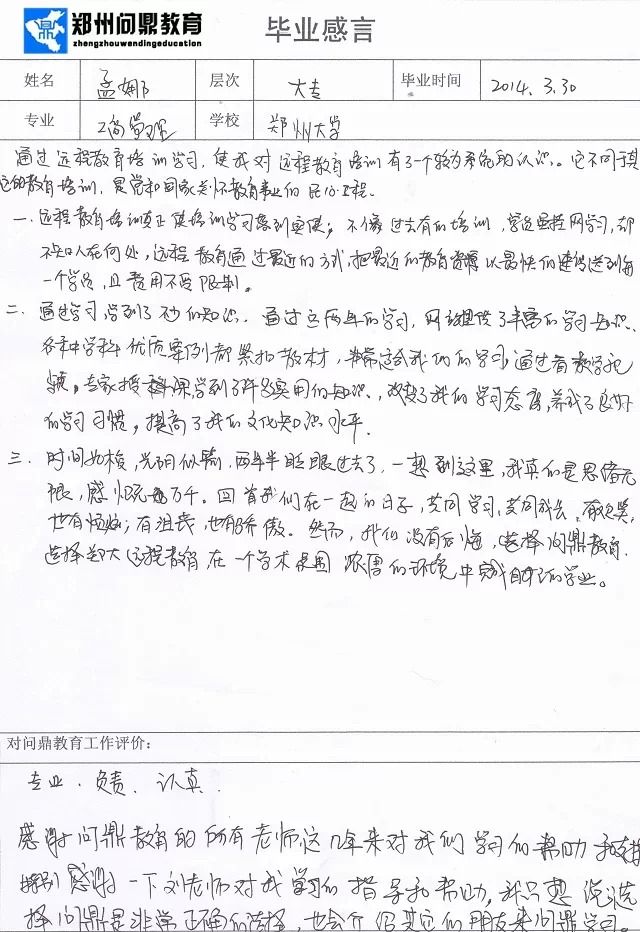 郑州问鼎教育
zhengzhouwendingeducation
毕业感言
姓名 孟娜 层次 大专 毕业时间 2014.3.30
专业 工商管理 学校 郑州大学
通过远程教育培训学习,使我对远程教育培训有了一个较为系统的认识。它不同于其
它的教育培训,是党和国家关怀教育事业的民心工程。
一、远程教育培训真正使培训学习落到实处;不像过去有的培训,学员虽在网学习,却
不知人在何处,远程教育通过最近的方式,把最近的教育资源以最快的速度送到每
一个学员,且费用不受限制。
二、通过学习学到了不少的知识。通过这两年的学习,网站提供了丰富的学习知识、
各种学科优质案例都累扣教材,非常适合我们的学习通过看教学视
频,专家授课学到了许多实用的知识,改变了我们学习态度,养成了良好
的学习习惯,提高了我们文化知识水平。
三、时间如梭,光阴似箭,两年半眨眼过去了,一想到这里,我真的是思绪无
限,感慨万千。回首我们在一起的日子,共同学习,共同成长,有欢笑,
也有烦恼;有沮丧,也有骄傲。然而,我们没有后悔,选择问鼎教育,
选择郑大远程教育在一个学术氛围浓厚的环境中完成自己的学业。
对问鼎教育工作评价:
专业、负责、认真
感谢问鼎教育的所有老师这几年来对我们学习的帮助和支持
特别感谢一下刘老师对我学习的指导和帮助,我只想说选
择问鼎是非常正确的选择,也会介绍其它的朋友来问鼎学习。